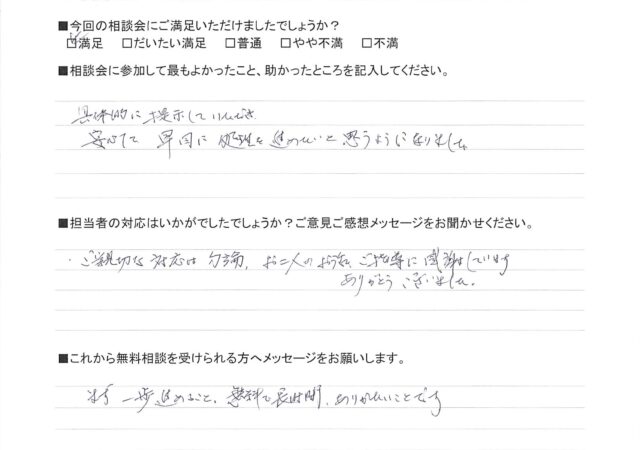 ■今回の相談会にご満足いただけましたでしょうか？
☑満足 □だいたい満足 □普通 □やや不満 □不満
■相談会に参加して最もよかったこと、助かったところを記入してください。
具体的に提示していただき
安心して 早向に 処理を進めたいと思うようになりました。
■担当者の対応はいかがでしたでしょうか？ご意見ご感想メッセージをお聞かせください。
・ご親切な対応は勿論、お二人の ご指導に感謝しています
ありがとうございました。
■これから無料相談を受けられる方へメッセージをお願いします。
まず 一歩進めること、無料で長時間、ありがたいことです